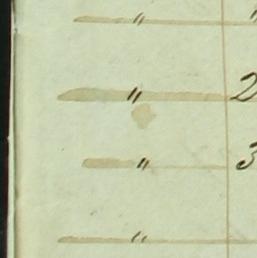 "
" 2
" 3
"